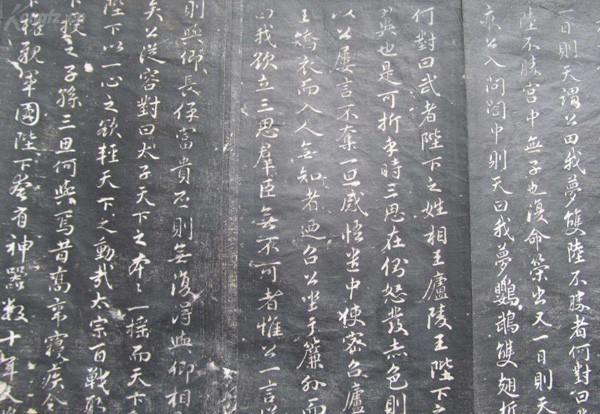 一日則天謂公曰我夢雙陸不勝者何對曰雙
陸不勝宮中無子也復命策出又一日則天
亦公入問閤中則天曰我夢鸚鵡雙翅折
何對曰武者陛下之姓相王廬陵王陛下之
翼也是可折乎時三思在側怒發赤色則
以公屢言不奪一旦感悟遣中使密召廬
王矯衣而入人無知者迺召公坐于簾外而
曰我欲立三思羣臣無不可者惟公一言從
則與卿長保富貴否則無復得與卿相
矣公從容對曰太子天下之本本一搖而天下
陛下以一心之欲輕天下之動哉太宗百戰取
下授之子孫三思何與焉昔高宗寢疾令
下權親軍國陛下奄有神器數十年又